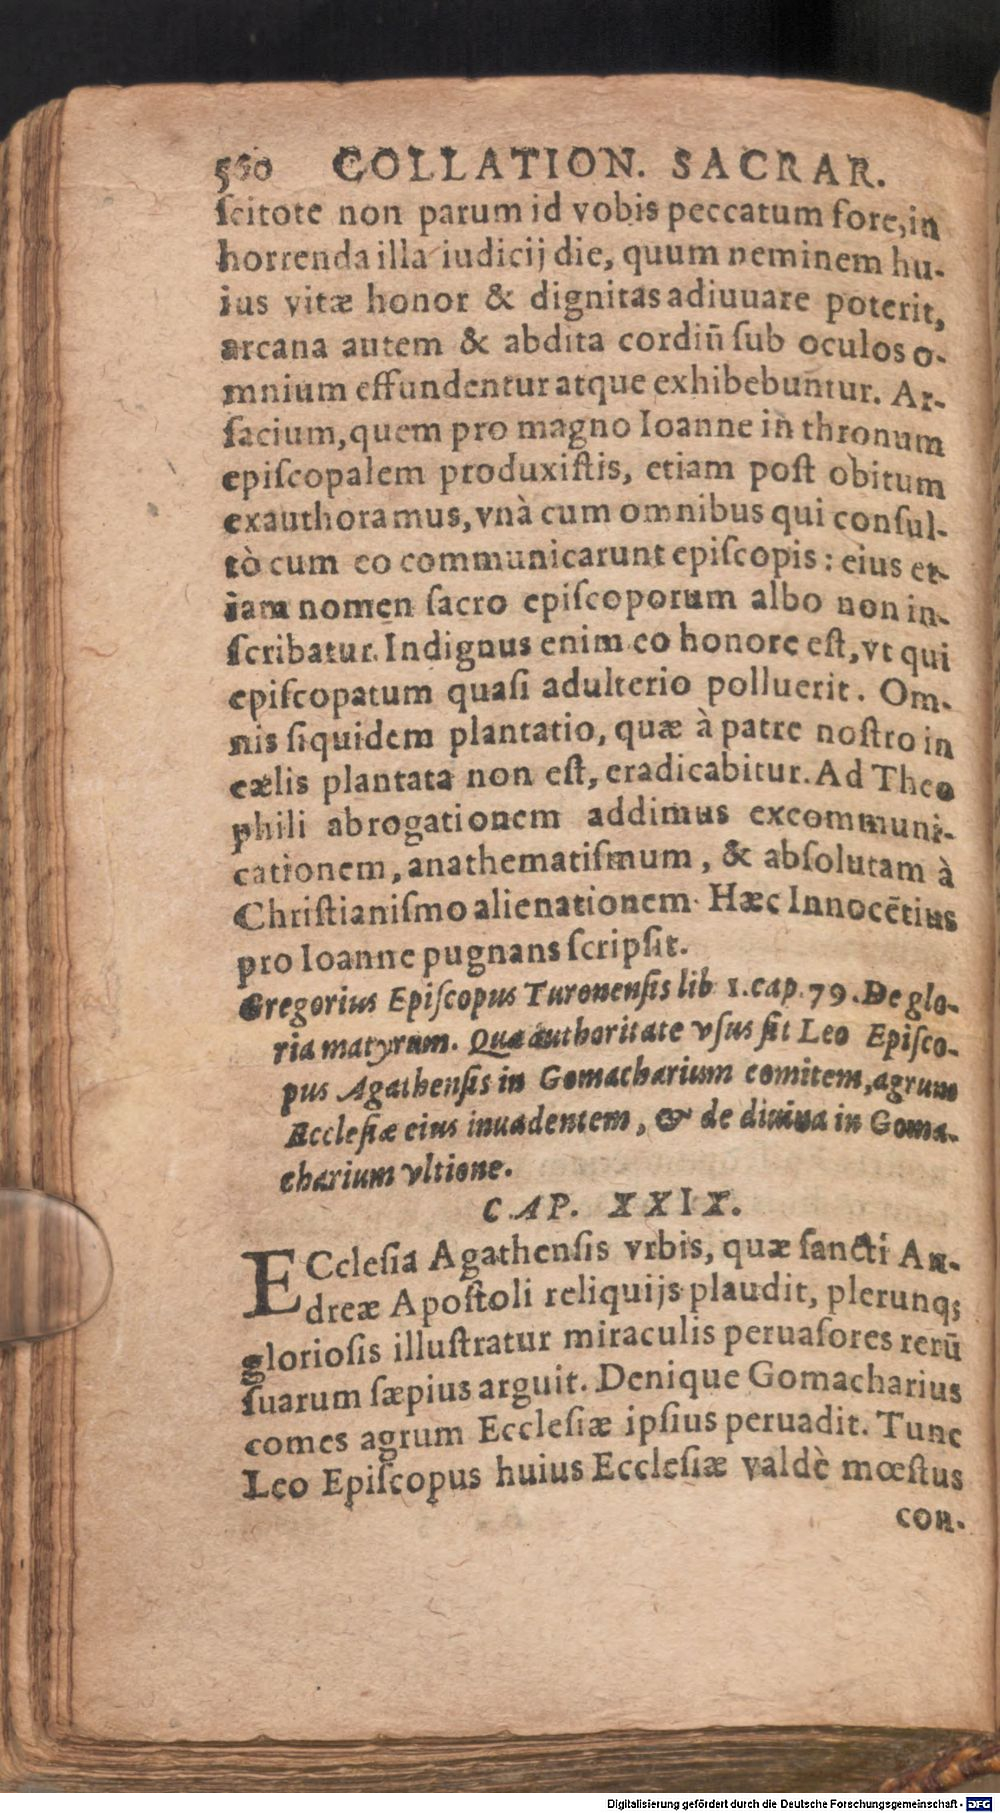 560 COLLATION. SACRAR.
ſcitote non parum id vobis peccatum fore, in
horrenda illa iudicij die, quum neminem hu-
ius vitæ honor & dignitas adiuuare poterit,
arcana autem & abdita cordiū ſub oculos o-
mnium effundentur atque exhibebuntur. Ar-
ſacium, quem pro magno Ioanne in thronum
epiſcopalem produxiſtis, etiam poſt obitum
exauthoramus, vnà cum omnibus qui conſul-
tò cum eo communicarunt epiſcopis: eius et-
iam nomen ſacro epiſcoporum albo non in-
ſcribatur. Indignus enim eo honore eſt, vt qui
epiſcopatum quaſi adulterio polluerit. Om-
nis ſiquidem plantatio, quæ à patre noſtro in
cælis plantata non eſt, eradicabitur. Ad Theo
phili abrogationem addimus excommuni-
cationem, anathematiſmum, & abſolutam à
Chriſtianiſmo alienationem. Hæc Innocētius
pro Ioanne pugnans ſcripſit.
Gregorius Epiſcopus Turonenſis lib 1. cap. 79. De glo-
ria matyrum. Qua authoritate vſus ſit Leo Epiſco-
pus Agathenſis in Gomacharium comitem, agrum
Eccleſiæ eius inuadentem, & de diuina in Goma-
charium vltione.
CAP. XXIX.
ECcleſia Agathenſis vrbis, quæ ſancti An-
dreæ Apoſtoli reliquijs plaudit, plerunq;
glorioſis illuſtratur miraculis peruaſores rerū
ſuarum ſæpius arguit. Denique Gomacharius
comes agrum Eccleſiæ ipſius peruadit. Tunc
Leo Epiſcopus huius Eccleſiæ valdè mœſtus
con-
Digitalisierung gefördert durch die Deutsche Forschungsgemeinschaft - DFG